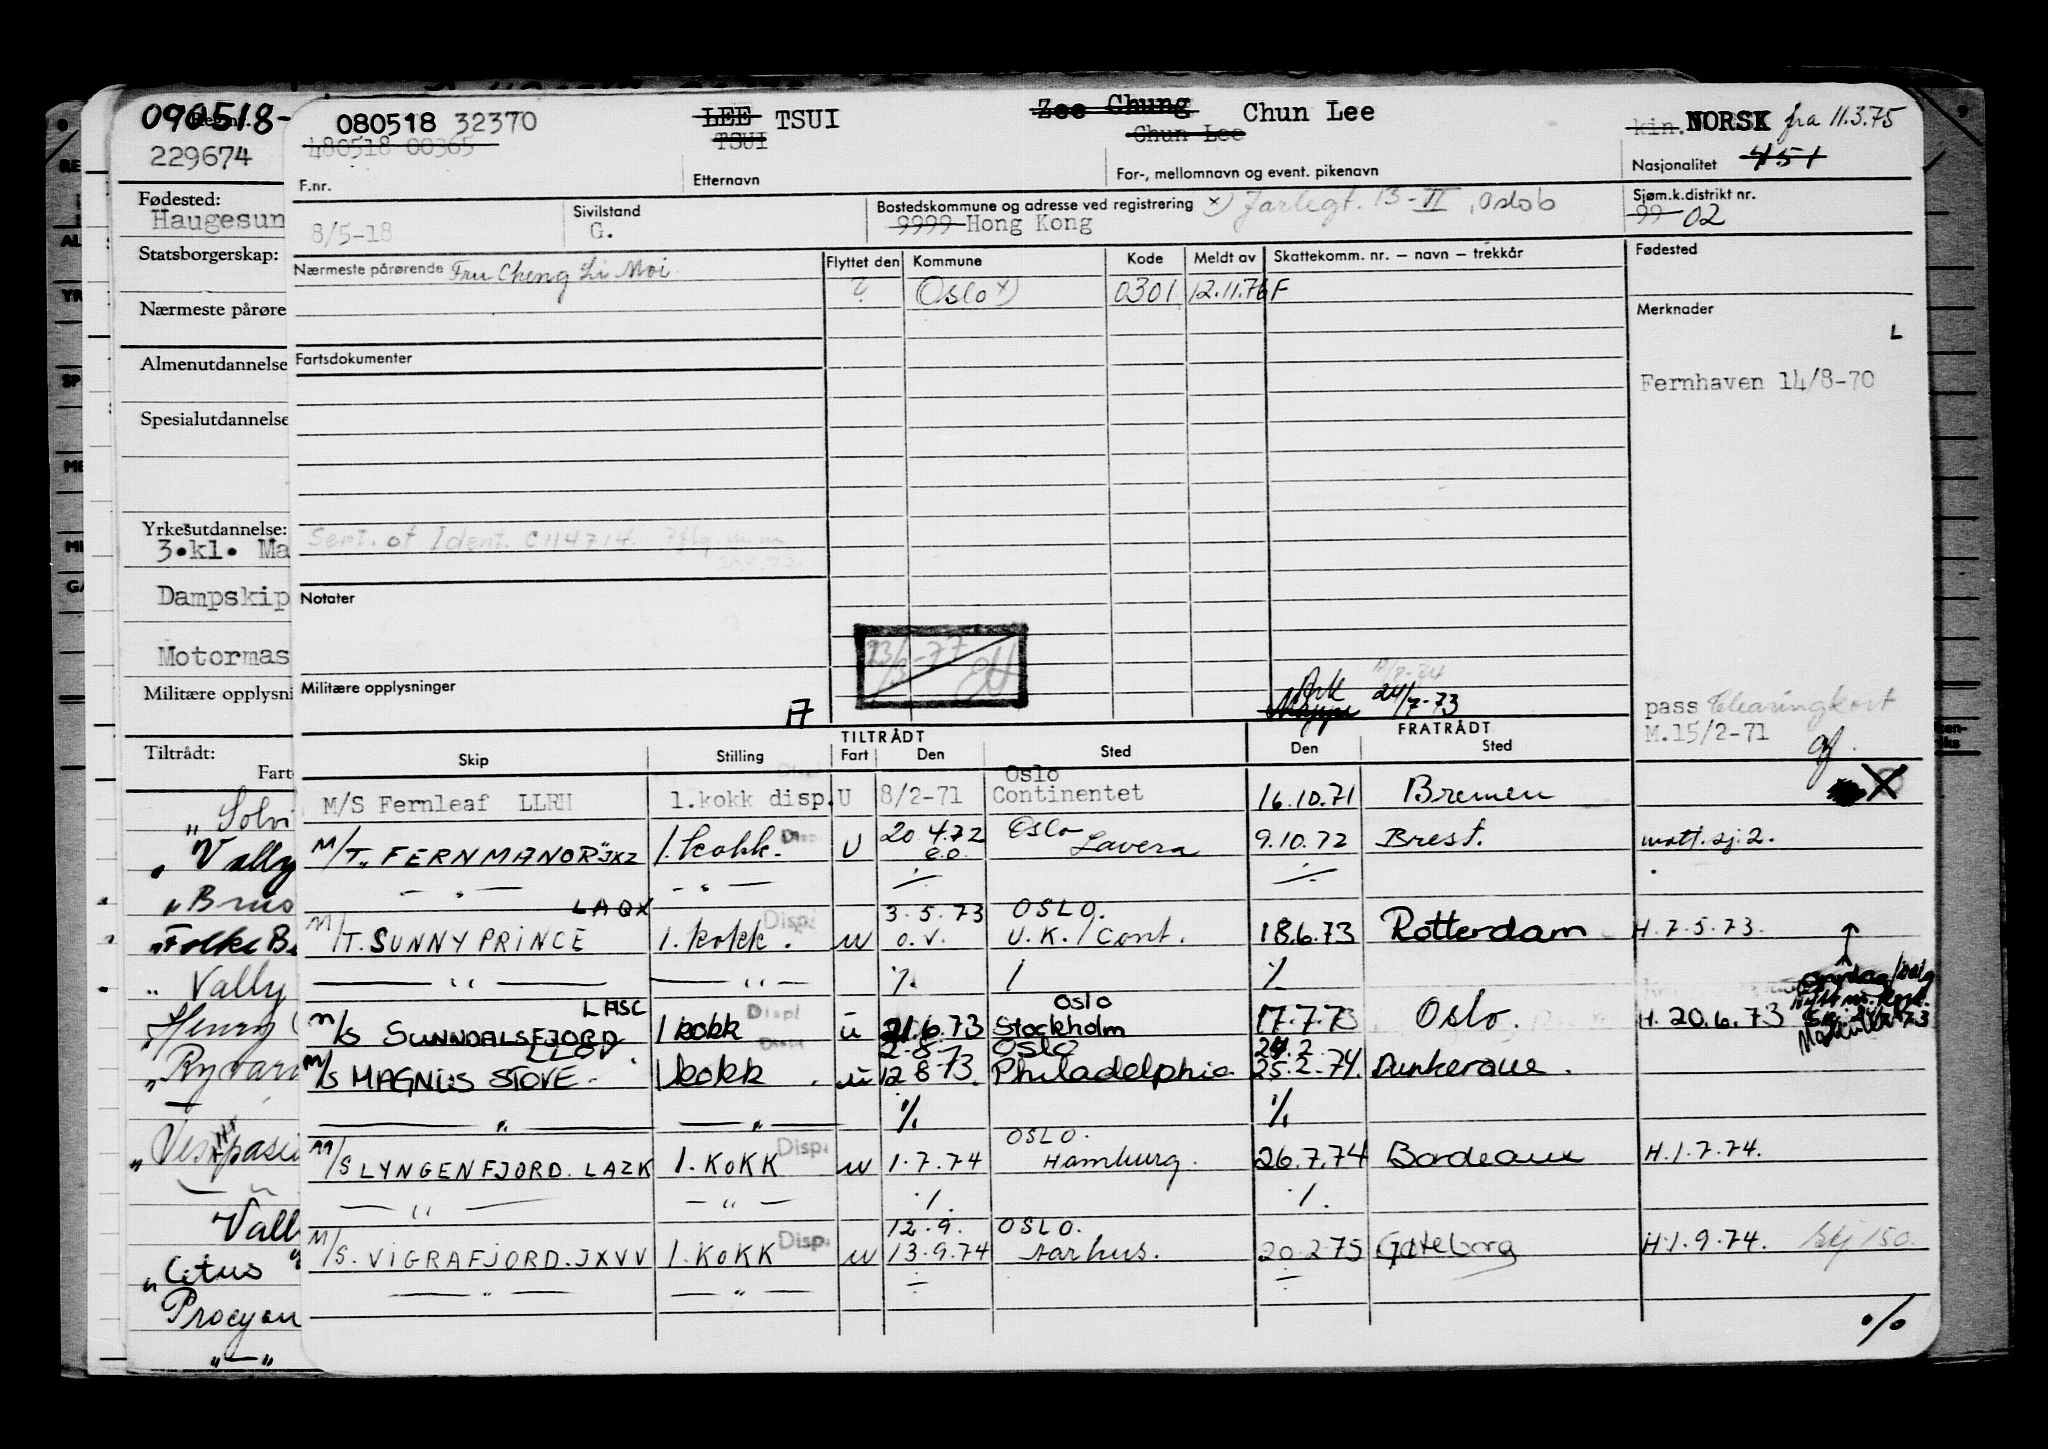 090518-
Reg.nr.
229674
Fødested:
Haugesun
Statsborgerskap:
Nærmeste pårøre
Almenutdannelse
Spesialutdannelse
Yrkesutdannelse:
3.kl. Ma
Dampskip
Motormas
Militære opplysni
Tiltrådt:
Fart
" Solvi
" Vally
" Brus
" Folke Be
" Vally
" Henry
" Ryvar
Vall
" Citus
Procyon
"—"
080518 32370
480518 00365
F.nr.
LEE TSUI
TSUI
Etternavn
Zee Chung Chun Lee
Chun Lee
For-, mellomnavn og event. pikenavn
kin. NORSK fra 11.3.75
Nasjonalitet 451
8/5-18
Sivilstand
G.
Bostedskommune og adresse ved registrering x) Jarlegt. 13-II, Oslo 6
9999 Hong Kong
Sjøm.k.distrikt nr.
99 02
Nærmeste pårørende Fru Cheng Li Moi
Flyttet den Kommune Kode Meldt av Skattekomm. nr. — navn — trekkår
? Oslo x) 0301 12.11.76 F
Fødested
Merknader
L
Fernhaven 14/8-70
Fartsdokumenter
Sert. of Ident. C114714.
Notater
Militære opplysninger
A
Ark
Mappe 24/7-73
pass Clearingkort
M.15/2-71
TILTRÅDT FRATRÅDT
Skip Stilling Fart Den Sted Den Sted
M/S Fernleaf LLRH 1.kokk disp. U 8/2-71 Oslo Continentet 16.10.71 Bremen X
M/T "FERNMANOR" JXZ 1. kokk. Disp. U 20.4.72 e.o. Oslo Lavera 9.10.72 Brest. mott. sj. 2.
— " — — " —
M/T. SUNNY PRINCE LAQX 1. kokk. Disp. u 3.5.73 o.v. OSLO. U.K./Cont. 18.6.73 Rotterdam H.7.5.73.
— " — — " — % / %
M/S SUNNDALSFJORD LASC 1 kokk Disp. u 21.6.73 Oslo Stockholm 17.7.73 Oslo. H. 20.6.73
M/S MAGNUS STOVE. 1 kokk Disp. u 2-8- 12.8.73. Oslo Philadelphia 24.2 25.2.74. Dunkerque.
— " — — " — % %
M/S LYNGENFJORD. LAZK 1. KOKK Disp. u 1.7.74 OSLO. Hamburg. 26.7.74 Bordeaux H.1.7.74.
— " — — " — % %
M/S. VIGRAFJORD. JXVV 1. KOKK Disp. u 12.9. 13.9.74 OSLO. Aarhus. 20.2.75 Gøteborg H.1.9.74. Skj 150.
— " — — " —
%